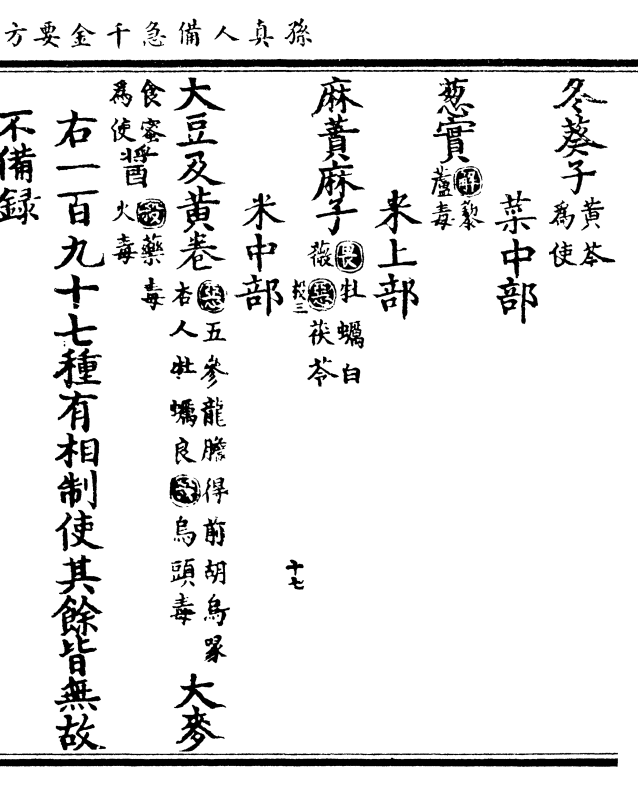 孫真人備急千金要方
冬葵子黄芩為使
菜中部
葱實解藜蘆毒
米上部
麻蕡麻子畏牡蠣白薇惡茯苓
十七
米中部
大豆及黄卷惡五參龍膽得前胡烏喙杏人牡蠣良殺烏頭毒 大麥
食蜜為使醬殺藥毒火毒
右一百九十七種有相制使其餘皆無故
不備録